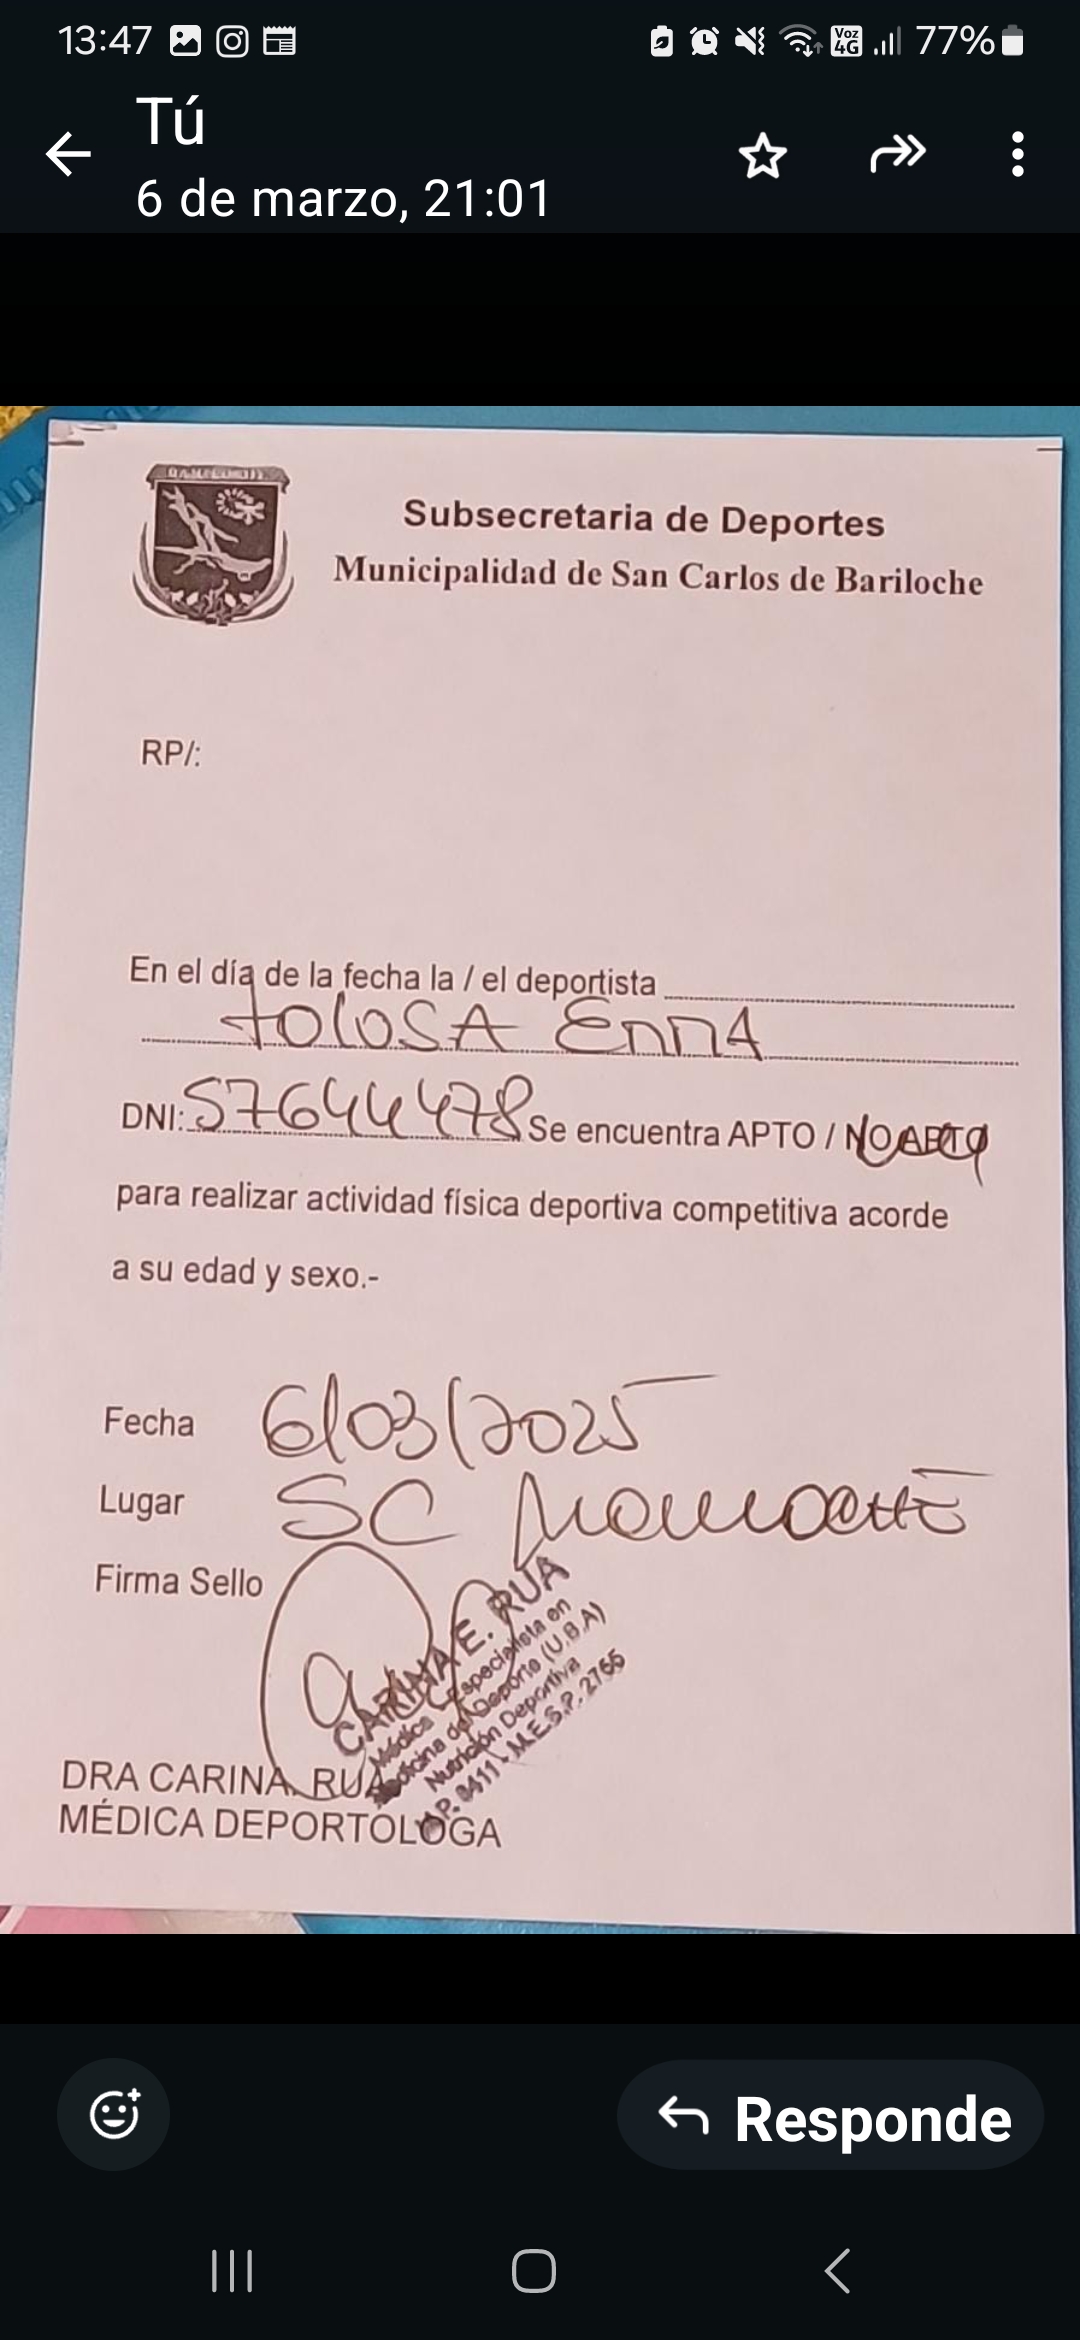 13:47
Voz
4G
77%
Tú
6 de marzo, 21:01
BARILOCHE
Subsecretaria de Deportes
Municipalidad de San Carlos de Bariloche
RP/:
En el día de la fecha la / el deportista
TOLOSA Emma
DNI: 57644478 Se encuentra APTO / NO APTO
para realizar actividad física deportiva competitiva acorde
a su edad y sexo.-
Fecha 6/03/2025
Lugar SC
Firma Sello
CARINA E. RUA
Médica Especialista en
Medicina del Deporte (U.B.A)
Nutrición Deportiva
M.P. 8411 - M.E.S.P. 2765
DRA CARINA. RUA
MÉDICA DEPORTOLOGA
Responde